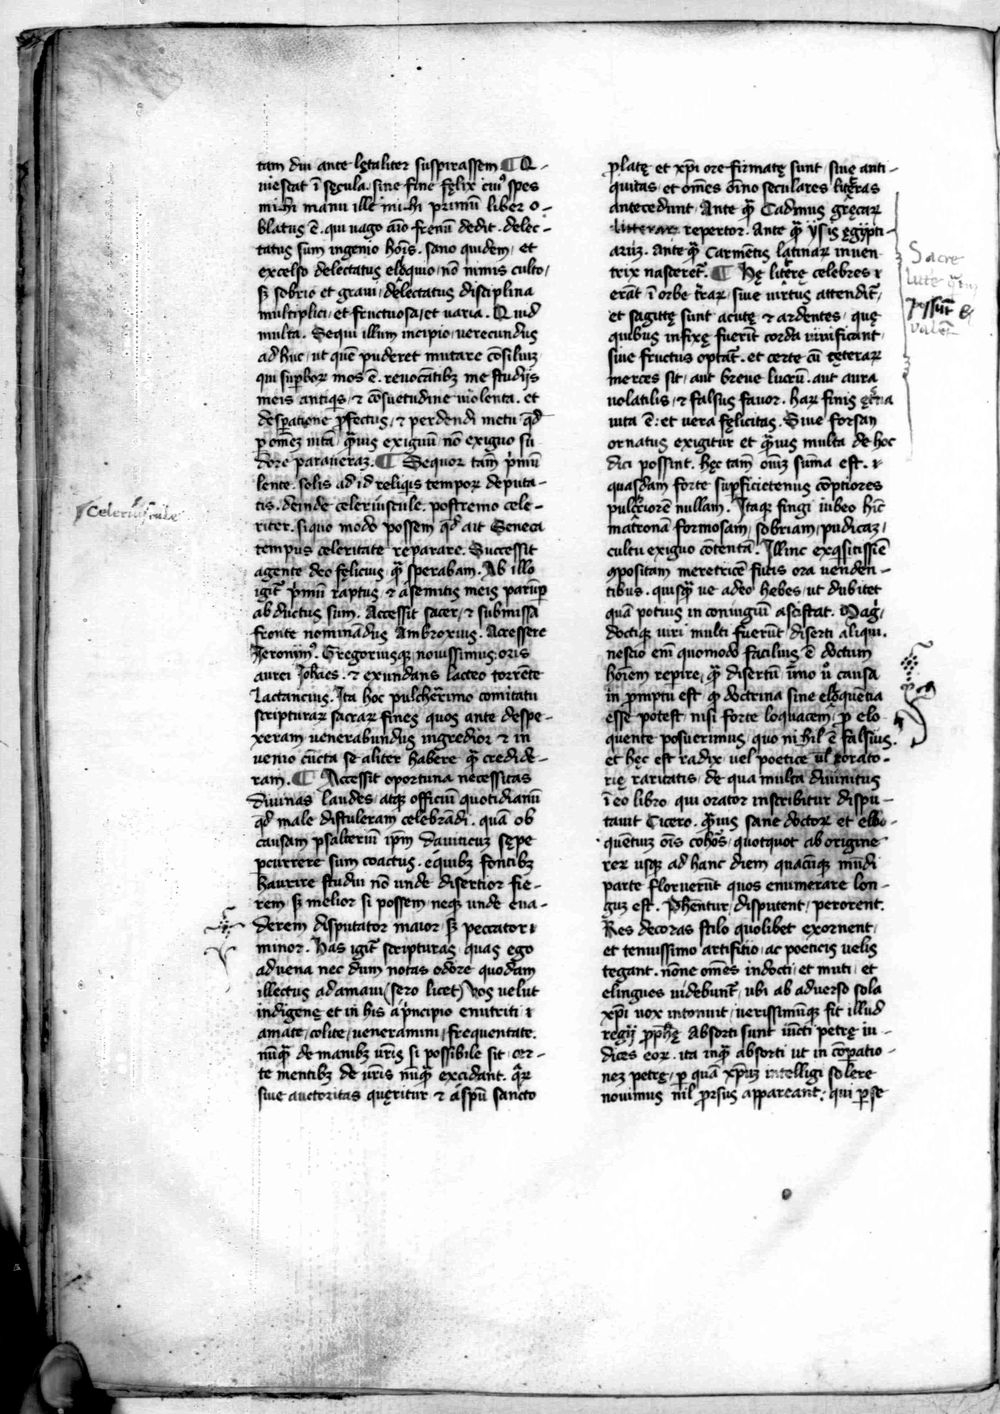 tam diu ante lętaliter suspirassem ¶ Q-
uiescat ī sęcula sine fine fęlix cuiꝰ spes
mihi manu ille mihi primū liber o-
blatus ē. qui uago aīo frenū dedit. delec-
tatus sum ingenio hoīs. sano quidem, et
excelso delectatus eloquio, nō nimis culto,
sꝫ sobrio et graui, delectatus disciplina
multiplici, et fructuosa, et uaria. Quid
multa. Sequi illum incipio, uerecundus
adhuc, ut quē puderet mutare cōsiliuꝫ
qui supboꝝ mos ē. reuocātibꝫ me studijs
meis antiqis, ⁊ cōsuetudine uiolenta. et
despatione ꝓfectus, ⁊ perdendi metu qđ
p omeꝫ uitā, qͣuis exiguū nō exiguo su
dore paraueraꝫ. ¶ Sequor tam̄ pͥmū
lente. solis ad id reliqis tempoꝝ deputa-
tis. deinde celeriuscule. postremo cele-
riter. si quo modo possem qđ ait Seneca
tempus celeritate reparare. Successit
agente deo felicius qͣ sperabam. Ab illo
igit̄ pͥmū raptus, ⁊ a semitis meis parūp
abductus sum. Accessit sacer, ⁊ submissa
fronte nominādus Ambrosius. Accessere
Jeronimꝰ. Gregoriusqꝫ, nouissimus oris
aurei Johaēs. ⁊ exundans lacteo torrēte
Lactancius. Ita hoc pulcherrimo comitatu
scripturaꝝ sacraꝝ fines quos ante despe-
xeram uenerabundus ingredior ⁊ in
uenio cūcta se aliter habere qͣ credide-
ram. ¶ Accessit oportuna necessitas
diuinas laudes, atqꝫ officiū quotidianū
qđ male distuleram celebrādi. quā ob
causam psalteriū ipm̄ dauiticuꝫ sępe
pcurrere sum coactus. e quibꝫ fontibꝫ
haurire studui nō unde disertior fie-
rem, sꝫ melior si possem, neqꝫ unde eua-
derem disputator maior, sꝫ peccator
minor. Has igit̄ scripturas, quas ego
aduena nec dum notas odore quodam
illectus adamaui (sero licet) vos uelut
indigenę et in his a pͥncipio enutriti,
amate, colite, ueneramini, frequentate.
nūqͣ de manibꝫ ur̄is si possibile sit, cer-
te mentibꝫ de ur̄is nūqͣ excidant. qͣr
siue auctoritas quęritur ⁊ a spū sancto
ꝓlatę et xp̄i ore firmatę sunt, siue anti-
quitas, et om̄es oīno seculares litt̄eras
antecedunt. Ante qͣ Cadmus gręcaꝝ
litteraꝝ repertor. Ante qͣ ysis ęgypti-
aꝝ. ante qͣ Carmētis latinaꝝ inuen
trix nasceret̄. ¶ Hę litt̄erę celebres
erāt ī orbe tr̄aꝝ, siue uirtus attendit̄,
et sagittę sunt acutę ⁊ ardentes, quę
quibus infixę fuerīt corda uiuificant,
siue fructus optat̄. et certe cū cęteraꝝ
merces sit, aut breue lucrū. aut aura
uolatilis, ⁊ falsus fauor. haꝝ finis ęt̄na
uita ē: et uera fęlicitas. Siue forsan
ornatus exigitur et qͣuis multa de hoc
dici possint. hęc tam̄ oīuꝫ sum̄a est.
quasdam forte supficietenus cōptiores
pulcriorē nullam. Itaqꝫ fingi iubeo hīc
matronā formosam, sobriam, pudicaꝫ,
cultu exiguo cōtentā. Illinc exqͥsitissiē
ꝯpositam meretricē fucis ora uenden-
tibus. quisqͣ ue adeo hebes, ut dubitet
quā potius in coniugiū asciscat. Magͥ
doctiqꝫ uiri multi fuerūt, diserti aliqui.
nescio em̄ quomodo facilius ē doctum
hoīem repire, qͣ disertū. īmo ů causa
in prōptu est qꝫ doctrina sine eloquētia
esse potest, nisi forte loquacem, ꝓ elo-
quente posuerimus, quo nihil ē falsius.
et hęc est radix, uel poetice ul̄ orato-
rię raritatis, de qua multa diuinitus
ī eo libro qui orator inscribitur dispu-
tauit Cicero. qͣuis sane doctoꝝ et elo-
quētum oīs cohors, quotquot ab origine
reꝝ usqꝫ ad hanc diem quacūqꝫ mūdi
parte floruerūt quos enumerare lon-
guꝫ est. Phentur, disputent, perorent.
Res decoras stilo quolibet exornent,
et tenuissimo artifitio, ac poeticis uelis
tegant. nōne om̄es indocti, et muti, et
elingues uidebunt̄, ubi ab aduerso sola
xp̄i uox intonuit, uerissimūqꝫ fit illud
regij ꝓphę̄ Absorti sunt iūcti petrę iu-
dices eoꝝ. ita inqͣ absorti ut in cōpatio-
neꝫ petrę, p quā xp̄uꝫ intelligi solere
nouimus nīl prorsus appareant: qui p se
Celeriuscule
Sacre
possūt et